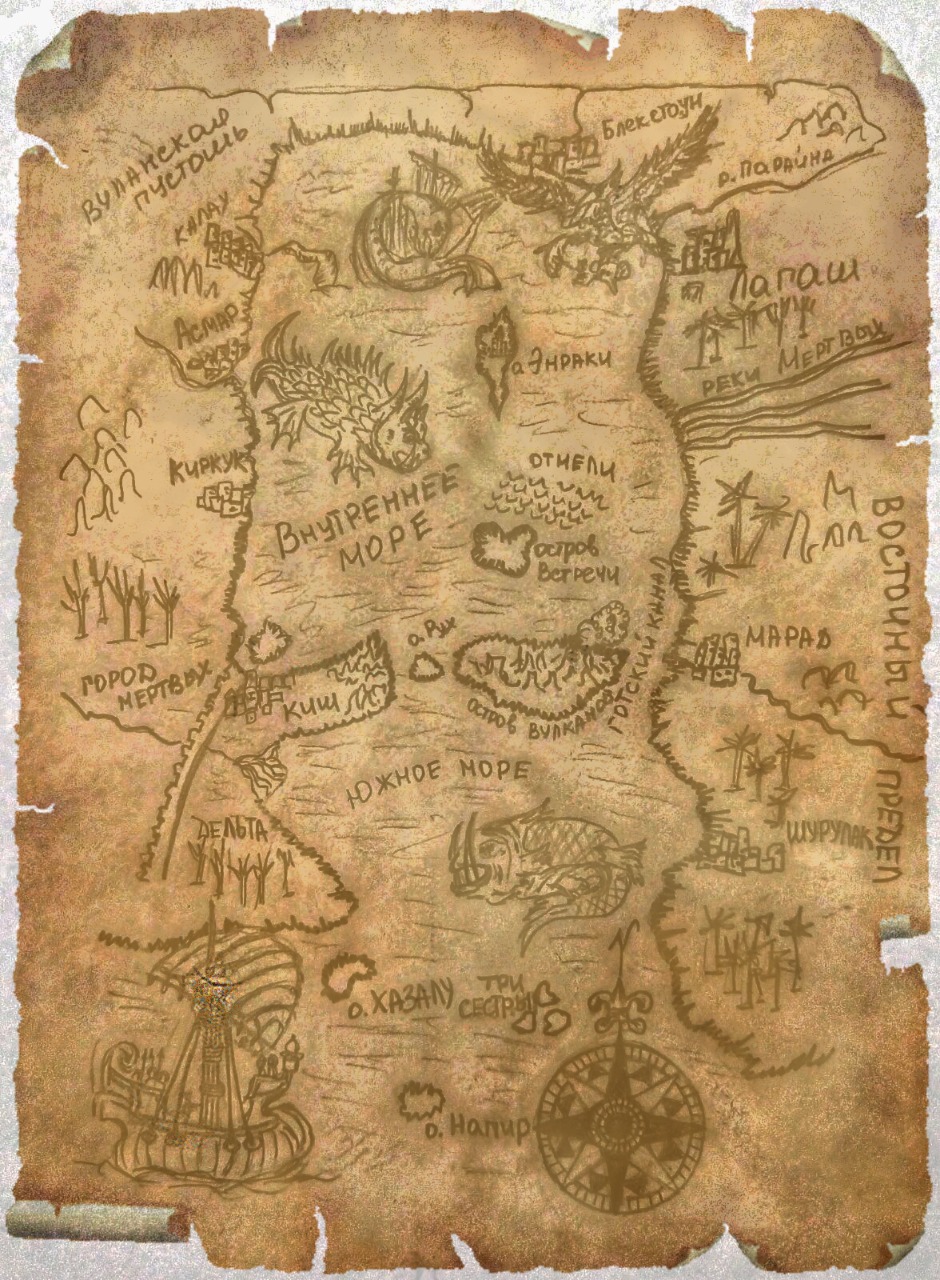 Блекстоун
Вулканская
пустошь
р. Парайна
Калау
Лагаш
Асмар
о. Энраки
реки Мертвых
Киркук
отмели
Внутреннее
море
остров
встречи
Восточный предел
Готский канал
о. Рух
Марад
город
мертвых
Киш
остров вулканов
Южное море
Дельта
Шурупак
о. Хазалу
Три
сестры
о. Напир